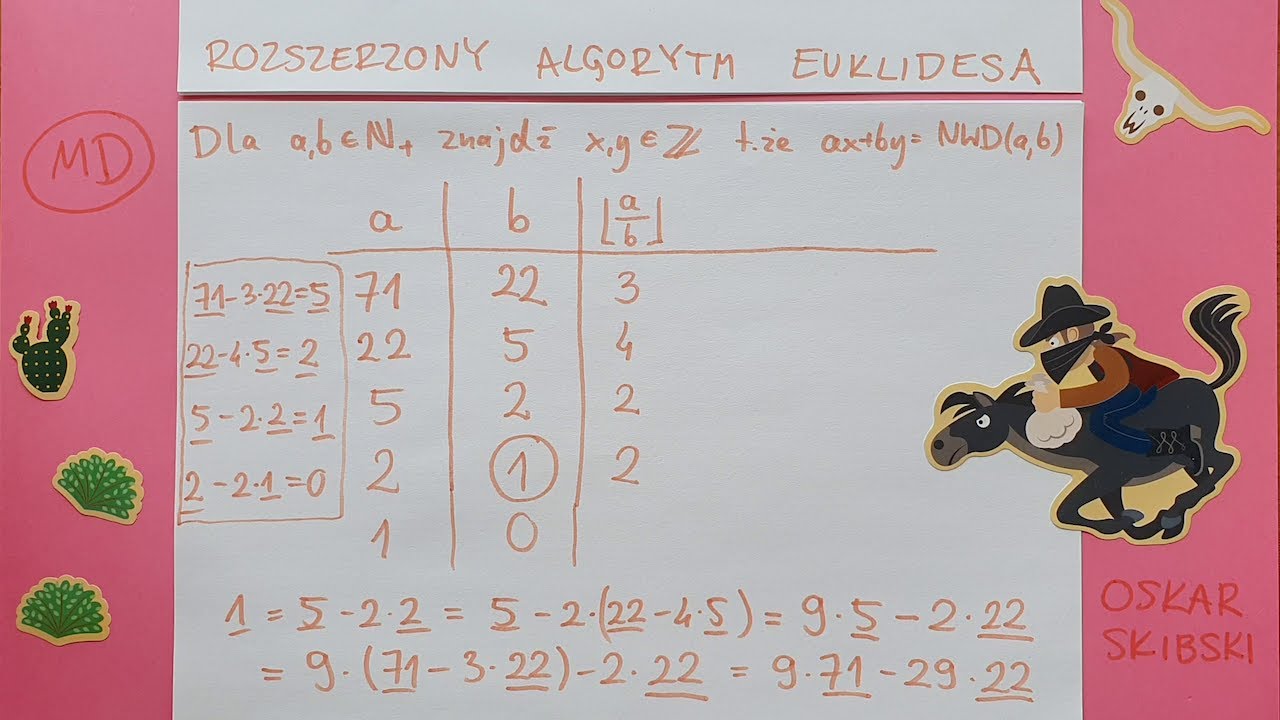 ROZSZERZONY ALGORYTM EUKLIDESA
MD
Dla a,b∈ℕ₊ znajdź x,y∈ℤ t.że ax+by=NWD(a,b)
a b ⌊a/b⌋
71-3·22=5 71 22 3
22-4·5=2 22 5 4
5-2·2=1 5 2 2
2-2·1=0 2 1 2
1 0
1 = 5-2·2 = 5-2·(22-4·5) = 9·5-2·22
= 9·(71-3·22)-2·22 = 9·71-29·22
OSKAR
SKIBSKI